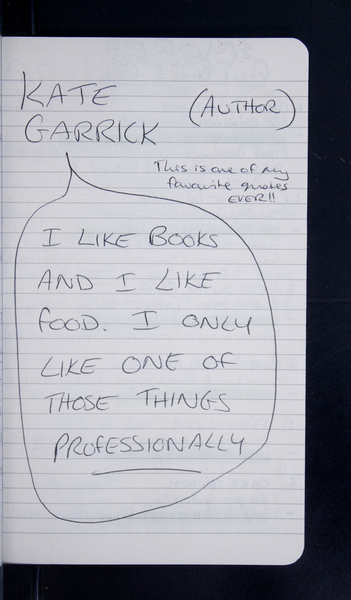 KATE
GARRICK
(AUTHOR)
This is one of my
favourite quotes
EVER!!
I LIKE BOOKS
AND I LIKE
FOOD. I ONLY
LIKE ONE OF
THOSE THINGS
PROFESSIONALLY